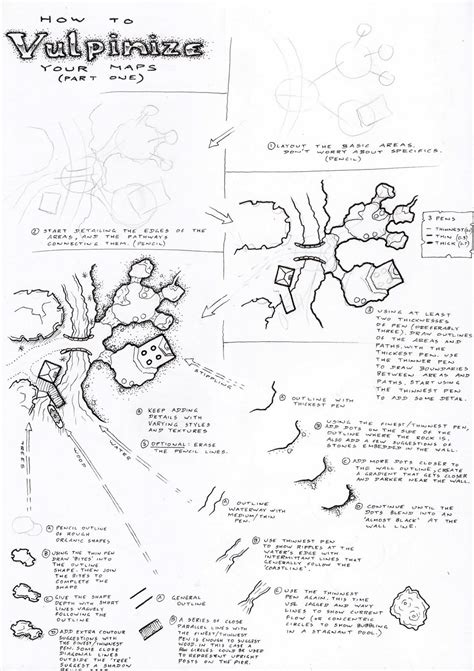 HOW TO
Vulpinize
YOUR MAPS
(PART ONE)
① LAYOUT THE BASIC AREAS.
DON'T WORRY ABOUT SPECIFICS.
(PENCIL)
② START DETAILING THE EDGES OF THE
AREAS, AND THE PATHWAYS
CONNECTING THEM. (PENCIL)
3 PENS
THINNEST
THIN
THICK
③ USING AT LEAST
TWO THICKNESSES
OF PEN (PREFERABLY
THREE). DRAW OUTLINES
OF THE AREAS AND
PATHS, WITH THE
THICKEST PEN. USE
THE THINNER PEN
TO DRAW BOUNDARIES
BETWEEN AREAS AND
PATHS, START USING
THE THINNEST PEN
TO ADD SOME DETAIL.
④ KEEP ADDING
DETAILS WITH
VARYING STYLES
AND TEXTURES
⑤ OPTIONAL: ERASE
THE PENCIL LINES.
STIPPLING
TREES
WOOD
WATER
Ⓐ OUTLINE WITH
THICKEST PEN
Ⓑ USING THE FINEST/THINNEST PEN,
ADD DOTS ON THE SIDE OF THE
OUTLINE WHERE THE ROCK IS.
ALSO ADD A FEW SUGGESTIONS OF
STONES EMBEDDED IN THE WALL.
Ⓒ ADD MORE DOTS CLOSER TO
THE WALL OUTLINE, CREATE
A GRADIENT THAT GETS CLOSER
AND DARKER NEAR THE WALL.
Ⓓ CONTINUE UNTIL THE
DOTS BLEND INTO AN
'ALMOST BLACK' AT THE
WALL LINE.
Ⓐ OUTLINE
WATERWAY WITH
MEDIUM/THIN
PEN.
Ⓑ USE THINNEST PEN
TO SHOW RIPPLES AT THE
WATER'S EDGE WITH
INTERMITTENT LINES THAT
GENERALLY FOLLOW THE
'COASTLINE'.
Ⓒ USE THE THINNEST
PEN AGAIN, THIS TIME
USE JAGGED AND WAVY
LINES TO SHOW CURRENT
FLOW (OR CONCENTRIC
CIRCLES TO SHOW BUBBLING
IN A STAGNANT POOL.)
Ⓐ PENCIL OUTLINE
OF ROUGH
ORGANIC SHAPES
Ⓑ USING THE THIN PEN
DRAW 'BITES' INTO
THE OUTLINE
SHAPE. THEN JOIN
THE BITES TO
COMPLETE THE
SHAPE
Ⓒ GIVE THE SHAPE
DEPTH WITH SHORT
LINES VAGUELY
FOLLOWING THE
OUTLINE
Ⓓ ADD EXTRA CONTOUR
SUGGESTIONS WITH
THE FINEST/THINNEST
PEN. SOME
DIAGONAL LINES
OUTSIDE THE 'TREE'
SUGGEST A SHADOW
Ⓐ GENERAL
OUTLINE
Ⓑ A SERIES OF CLOSE
PARALLEL LINES WITH
THE FINEST/THINNEST
PEN IS ENOUGH TO SUGGEST
WOOD. IN THIS CASE A
FEW CIRCLES COULD BE
USED TO REPRESENT UPRIGHT
POSTS ON THE PIER.